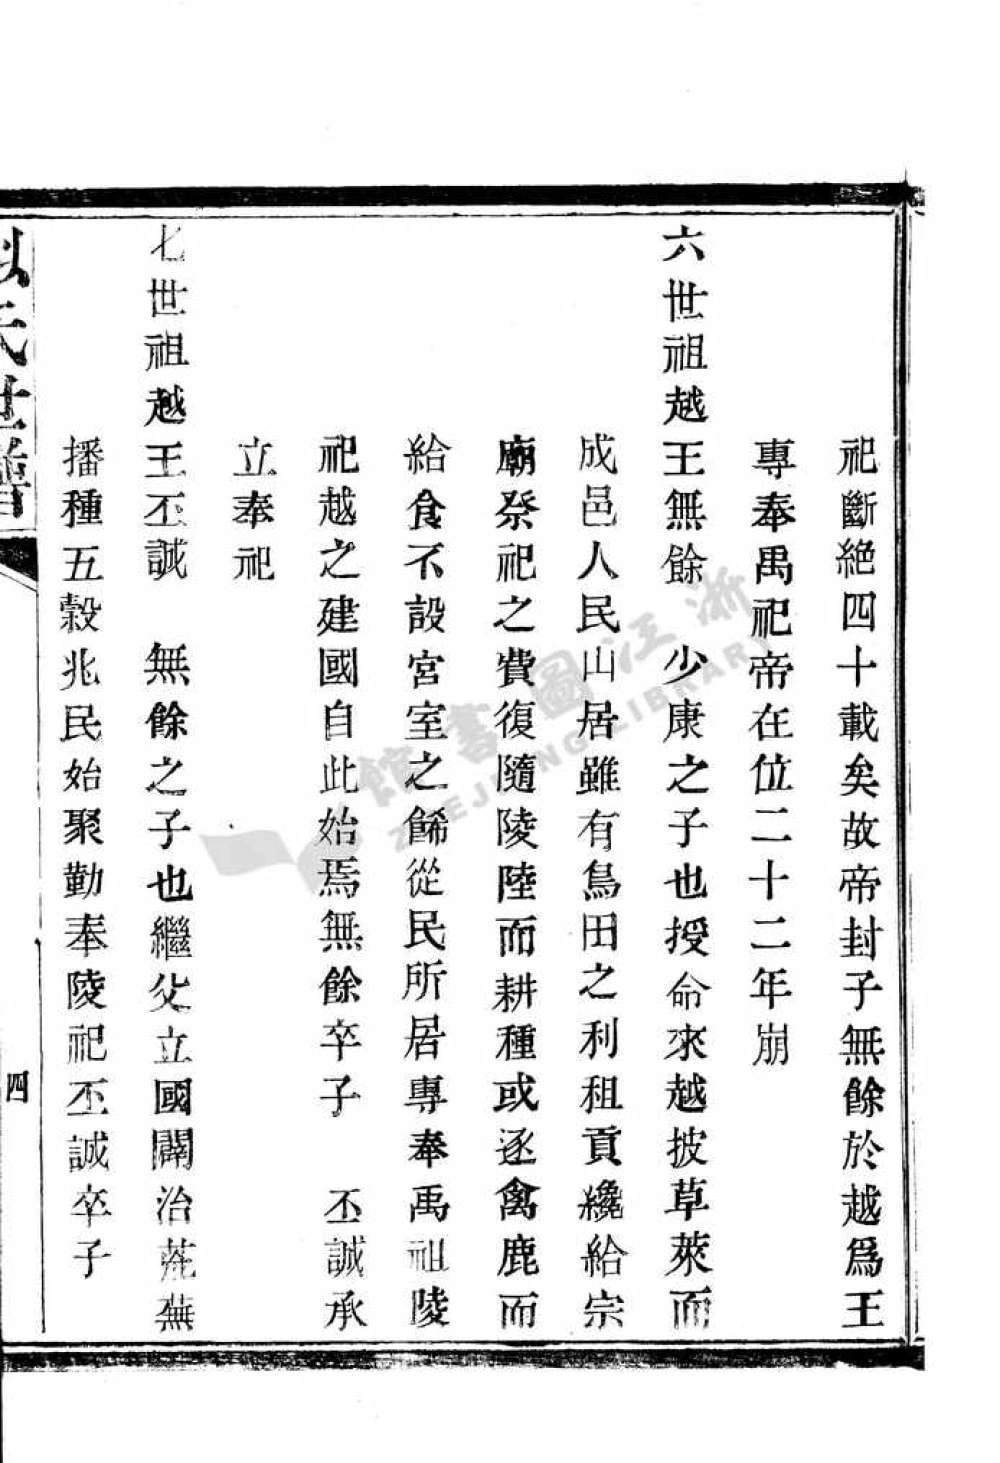 祀斷絕四十載矣故帝封子無餘於越爲王
專奉禹祀帝在位二十二年崩
六世祖越王無餘　少康之子也授命來越披草萊而
成邑人民山居雖有鳥田之利租貢纔給宗
廟祭祀之費復隨陵陸而耕種或逐禽鹿而
給食不設宮室之餙從民所居專奉禹祖陵
祀越之建國自此始焉無餘卒子　丕誠承
立奉祀
七世祖越王丕誠　無餘之子也繼父立國闢治荒蕪
播種五穀兆民始聚勤奉陵祀丕誠卒子
姒氏世譜
四
浙江圖書館
ZHEJIANG LIBRARY